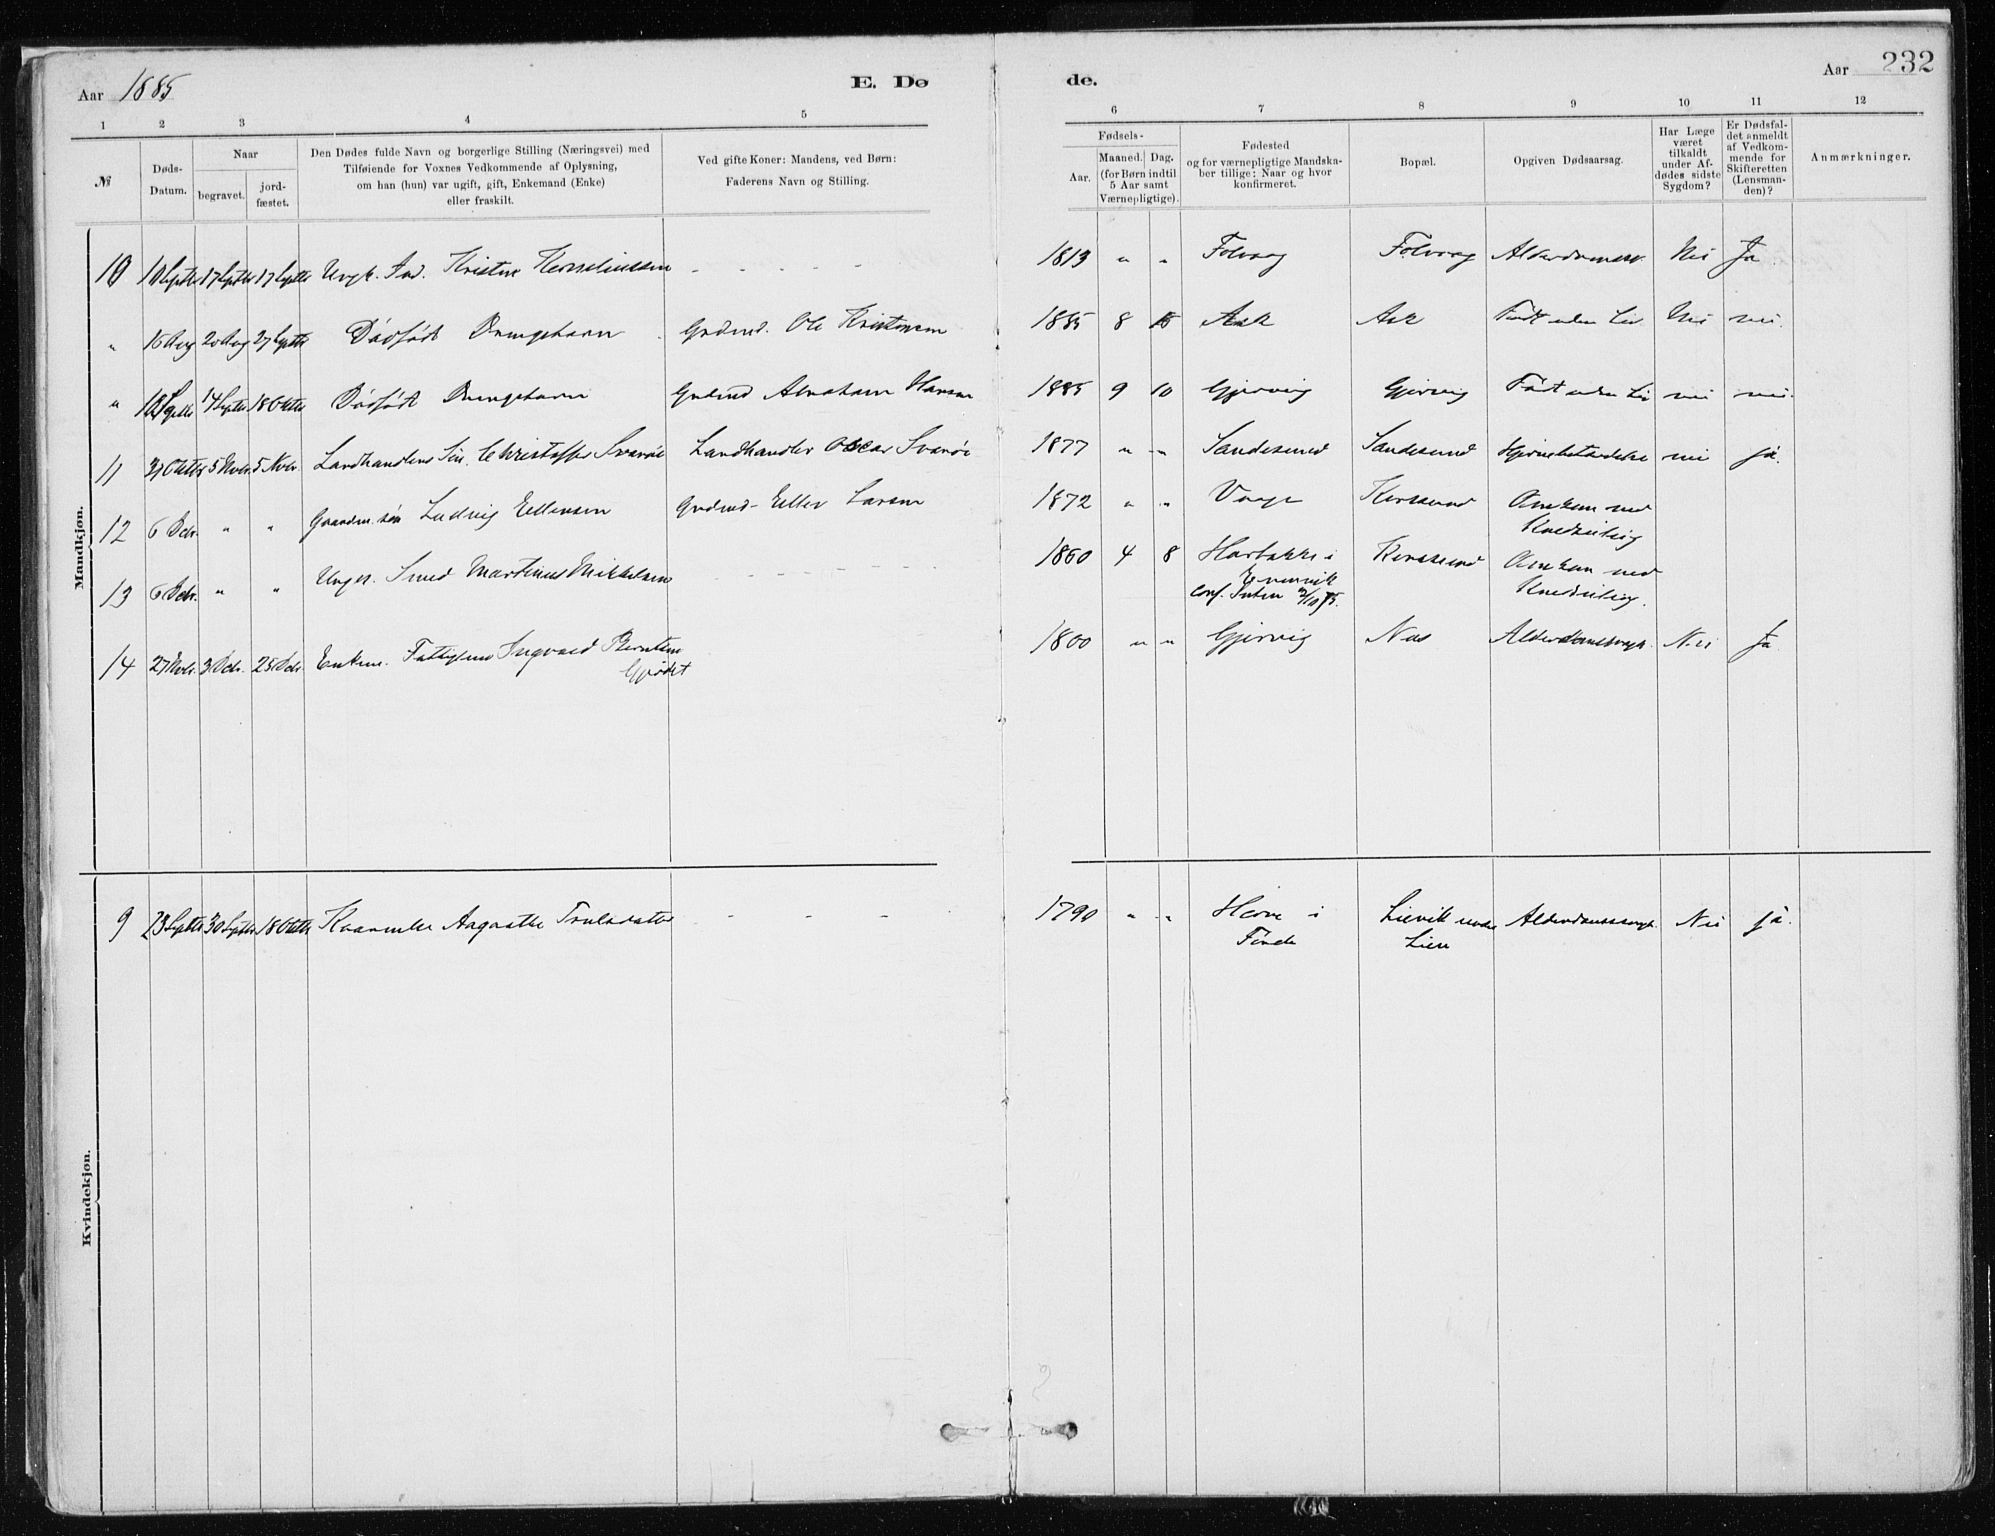 Aar 1885 E. Dø de. Aar 232
1 2 3 4 5 6 7 8 9 10 11 12
№
Døds-
Datum.
Naar
begravet.
jord-
fæstet.
Den Dødes fulde Navn og borgerlige Stilling (Næringsvei) med
Tilføiende for Voxnes Vedkommende af Oplysning,
om han (hun) var ugift, gift, Enkemand (Enke)
eller fraskilt.
Ved gifte Koner: Mandens, ved Børn:
Faderens Navn og Stilling.
Fødsels-
Aar.
Maaned. Dag.
(for Børn indtil
5 Aar samt
Værnepligtige).
Fødested
og for værnepligtige Mandska-
ber tillige: Naar og hvor
konfirmeret.
Bopæl.
Opgiven Dødsaarsag.
Har Læge
været
tilkaldt
under Af-
dødes sidste
Sygdom?
Er Dødsfal-
det anmeldt
af Vedkom-
mende for
Skifteretten
(Lensman-
den)?
Anmærkninger.
Mandkjøn.
10 10 Septbr 17 Septbr 17 Septbr Ungk. Ind. Kristen Korneliussen - - - - - 1813 " " Folvaag Folvaag Nei Ja.
" 15 Aug 20 Aug 27 Septbr Dødfødt Drengebarn Grdmd. Ole Kristensen 1885 8 15 Ask Ask Født uden Liv Nei nei.
" 10 Septbr 14 Septbr 18 Oktbr Dødfødt Drengebarn Grdmd Abraham Hansen 1885 9 10 Gjervig Gjervig Født uden Liv nei nei.
11 31 Oktbr 5 Novbr. 5 Novbr. Landhandlers Søn. Christoffer Svanøe Landhandler Oscar Svanøe 1877 " " Sandesund Sandesund Hjernebetændelse nei ja.
12 6 Dcbr. " " Gaardm. søn Ludvig Ellensen Grdmd- Eller Larsen 1872 " " Vaage Korssund Omkom ved
Kuldseiling
13 6 Dcbr. " " Ungk. Smed Martinus Mikkelsen - - - - - 1860 4 8 Harbakke i Korssund Omkom ved
Evenvik Kuldseiling.
conf.
14 27 Novbr. 3 Dcbr. 25 Dcbr. Enkem. Fattiglem Ingvald Berntsen 1800 " " Gjervig Nes Alderdomssvagh. Nei Ja.
Kvindekjøn.
9 23 Septbr 30 Septbr 18 Oktbr Kaarenke Aagaathe Trulsdatter - - - 1790 " " i Alderdomssvagh. Nei ja.
Førde Lien